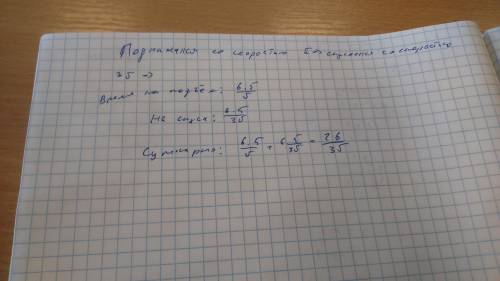 Поднимался со скоростью 5 => спускался со скоростью
25 =>
Время на подъем: 6.5/5
На спуск: 6.5/25
Суммарно: 6.5/5 + 6.5/25 =